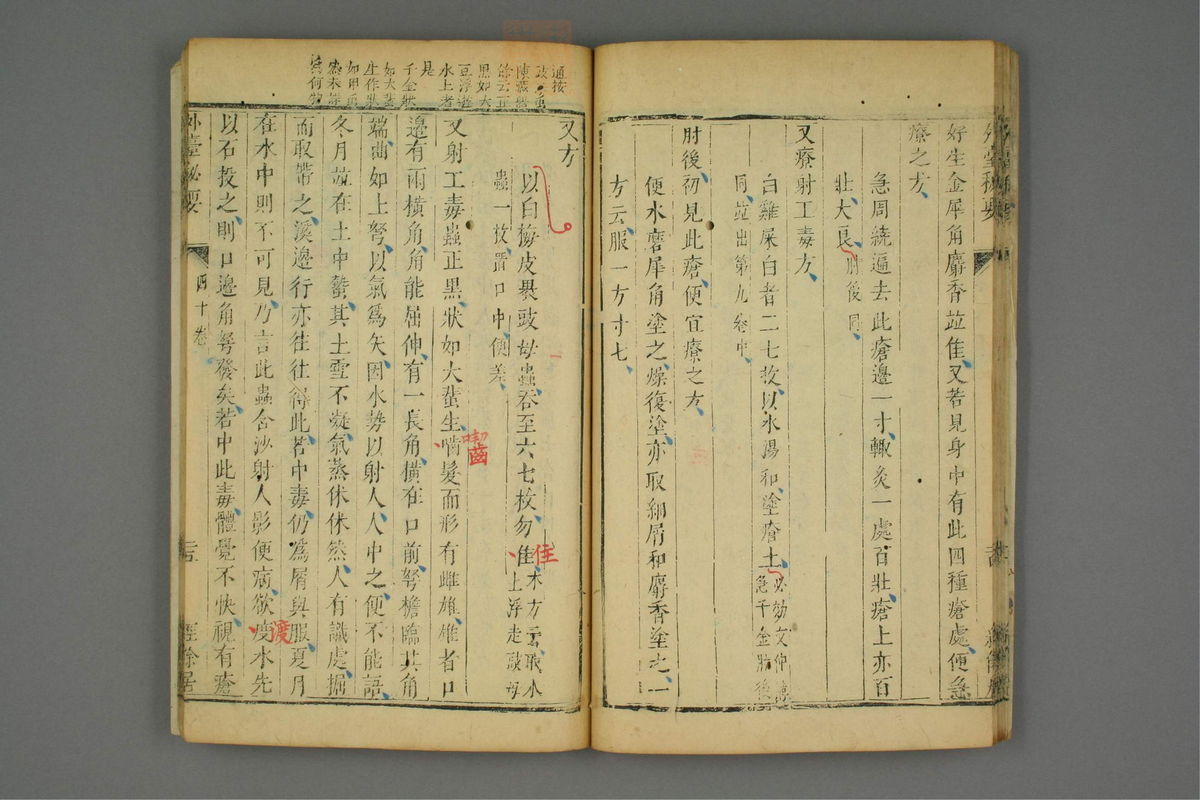 好生金犀角麝香並佳又若見身中有此四種瘡處便急
療之方
急周繞遍去此瘡邊一寸輙灸一處百壯瘡上亦百
壯大良肘後同
又療射工毒方
白雞屎白者二七枚以水湯和塗瘡上必効文仲
急千金肘後
同並出第九卷中
肘後初見此瘡便宜療之方
便水磨犀角塗之燥復塗亦取細屑和麝香塗之一
方云服一方寸七
通按
陳藏器
餘云正
黑如大
豆浮遊
水上者
是
千金狀
如大蜚
生作狀
如甲虫
為何物
又方
以白梅皮裹豉母蟲吞至六七枚勿佳本方云取水
上浮走豉母
住
蟲一枚置口中便差
又射工毒蟲正黑狀如大蜚生嚙髮而形有雌雄雄者口
囓
邊有兩橫角角能屈伸有一長角橫在口前弩檐臨其角
端曲如上弩以氣為矢因水勢以射人人中之便不能語
冬月故在土中蟄其土雪不凝氣蒸休休然人有識處掘
而取帶之溪邊行亦往往得此若中毒仍為屑與服夏月
在水中則不可見乃言此蟲含沙射人影便病欲度水先
渡
以石投之則口邊角弩發矣若中此毒體覺不快視有瘡
外臺秘要
四十卷
經餘居